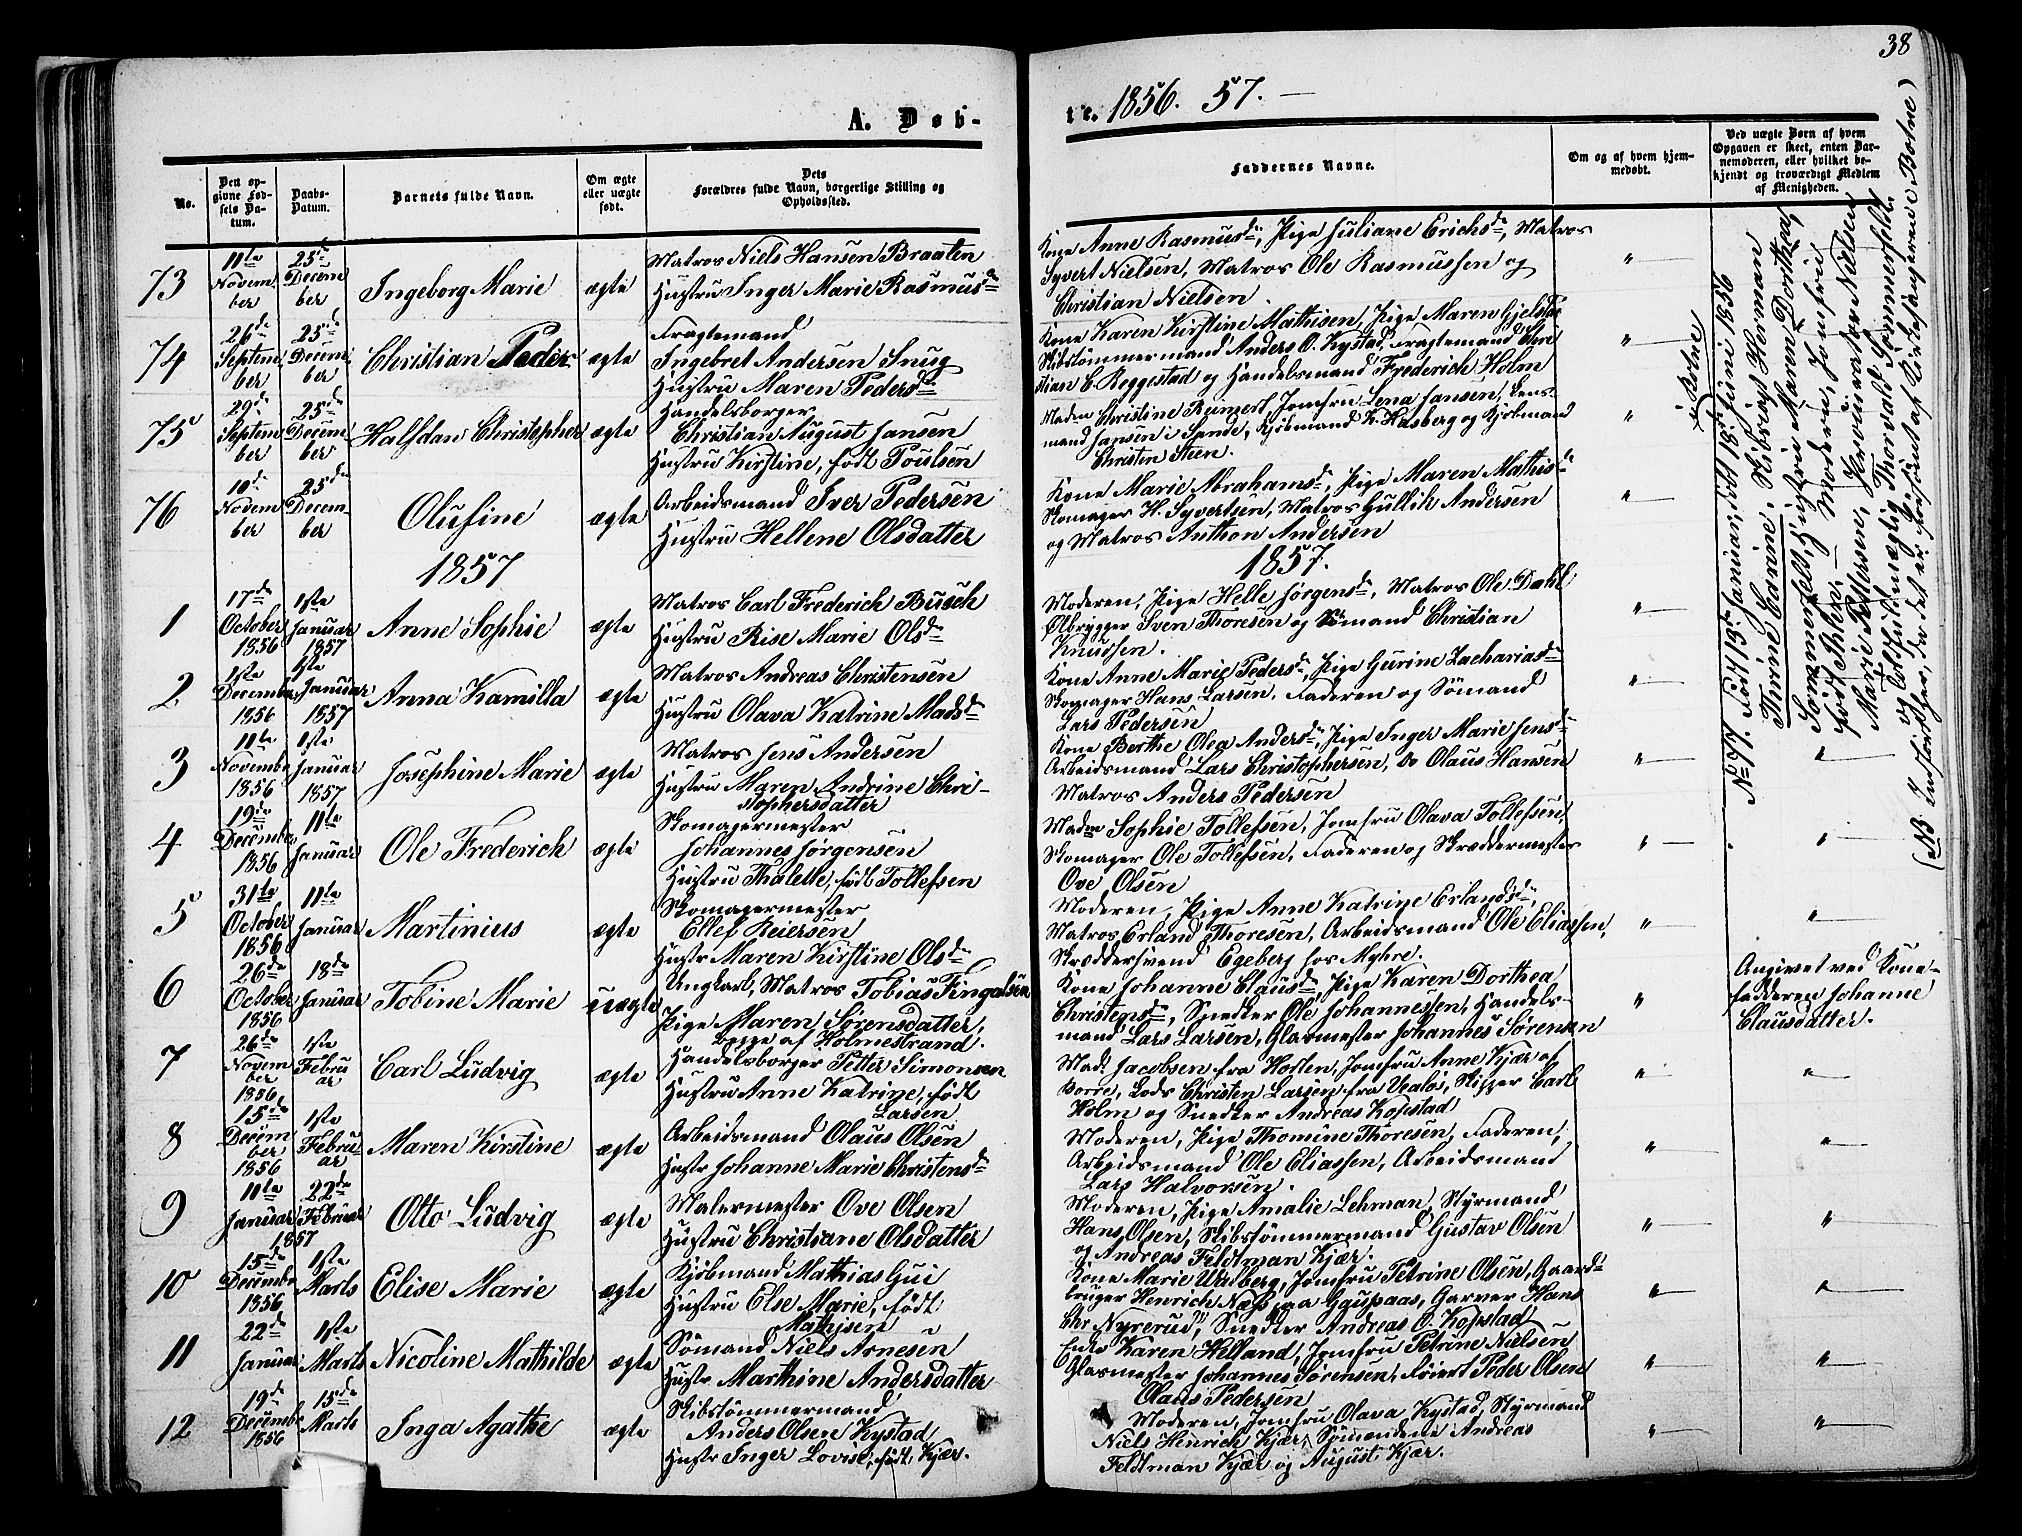 38
A. Døb-
te. 1856. 57. —
No.
Den op-
givne Fød-
sels Da-
tum.
Daabs-
Datum.
Barnets fulde Navn.
Om ægte
eller uægte
født.
Dets
Forældres fulde Navn, borgerlige Stilling og
Opholdssted.
Faddernes Navne.
Om og af hvem hjem-
medøbt.
Ved uægte Børn af hvem
Opgaven er skeet, enten Bar-
nemoderen, eller hvilket be-
kjendt og troværdigt Medlem
af Menigheden.
73
11te Novem ber
25de Decem ber
Ingeborg Marie
ægte
Matros Niels Hansen Braaten
Hustru Inger Marie Rasmusdr
Kone Anne Rasmusdr, Pige Juliane Erichsdr, Matros
Syvert Nielsen, Matros Ole Rasmussen og
Christian Nielsen.
74
26de Septem ber
25de Decem ber
Christian Peder
ægte
Fragtemand
Ingebret Andersen Snug
Hustru Maren Pedersdr
Kone Karen Kirstine Mathisen, Pige Maren Gjelstøe
Skibstømmermand Anders O. Kystad, Fragtemand Chri
stian C. Reggestad og Handelsmand Frederich Holm
75
29de Septem ber
25de Decem ber
Halfdan Christopher
ægte
Handelsborger
Christian August Jansen
Hustru Kirstine, født Poulsen
Madm Christine Reimert, Jomfru Lena Jansen, Lens-
mand Jansen i Sande, Kjøbmand K. Hasberg og Kjøbmand
Christen Steen.
76
10de Novem ber
25de Decem- ber
Olufine
ægte
Arbeidsmand Iver Pedersen
Hustru Hellene Olsdatter
Kone Marie Abrahamsdr, Pige Maren Mathisdr
Skomager H. Syvertsen, Matros Gullik Andersen
og Matros Anthon Andersen
1857
1857.
1
17de October 1856
1ste Januar 1857
Anne Sophie
ægte
Matros Carl Frederich Busch
Hustru Rise Marie Olsdr
Moderen, Pige Helle Jørgensdr, Matros Ole Dahl
Ølbrygger Sven Thoresen og Sømand Christian
Knudsen.
2
1ste Decembr 1856
1ste Januar 1857
Anna Kamilla
ægte
Matros Andreas Christensen
Hustru Olava Katrine Madsdr
Kone Anne Marie Pedersdr, Pige Gurine Zachariasdr
Skomager Hans Larsen, Faderen og Sømand
Lars Pedersen
3
11te Novembr 1856
1ste Januar 1857
Josephine Marie
ægte
Matros Jens Andersen
Hustru Maren Andrine Chri-
stophersdatter
Kone Berthe Olea Andersdr, Pige Inger Marie Jensdr
Arbeidsmand Lars Christophersen, Do Olaus Hansen
Matros Anders Pedersen
4
19de Decembr 1856
11te Januar
Ole Frederich
ægte
Skomagermester
Johannes Jørgensen
Hustru Thalette, født Tollefsen
Madm Sophie Tollefsen, Jomfru Olava Tollefsen,
Skomager Ole Tollefsen, Faderen og Skræddermester
Ove Olsen
5
31te October 1856
11te Januar
Martinius
ægte
Skomagermester
Ellef Reiersen
Hustr Maren Kirstine Olsdr
Moderen, Pige Anne Katrine Erlandsdr,
Matros Erland Thoresen, Arbeidsmand Ole Eliassen,
Skræddersvend Egeberg hos Myhre.
6
26de October 1856
18de Januar
Tobine Marie
uægte
Ungkarl, Matros Tobias Fingalsen
Pige Maren Sørensdatter,
begge af Holmestrand.
Kone Johanne Clausdr, Pige Karen Dorthea
Christensdr, Snedker Ole Johannessen, Handels-
mand Lars Larsen, Glasmester Johannes Sørensen
Angivet ved Kone-
fadderen Johanne
Clausdatter.
7
26de Novem ber 1856
1ste Febru ar
Carl Ludvig
ægte
Handelsborger Petter Simonsen
Hustru Anne Katrine, født
Larsen
Mad. Jacobsen fra Horten, Jomfru Anne Kjær af
Borre, Lods Christen Larsen fra Valøs, Skipper Carl
Holm og Snedker Andreas Kopstad
8
15de Decem ber 1856
1ste Febru- ar
Maren Kirstine
ægte
Arbeidsmand Olaus Olsen
Hustr Johanne Marie Christensdr
Moderen, Pige Thomine Thoresen, Faderen,
Arbeidsmand Ole Eliassen, Arbeidsmand
Lars Halvorsen.
9
11te Januar 1857
22de Februar
Otto Ludvig
ægte
Malermester Ove Olsen
Hustru Christiane Olsdatter
Moderen, Pige Amalie Lehman, Styrmand
Hans Olsen, Skibstømmermand Gustav Olsen
og Andreas Feldtman Kjær.
10
15de Decembr 1856
1ste Marts
Elise Marie
ægte
Kjøbmand Mathias Gui
Hustru Else Marie, født
Mathisen
Kone Marie Wadberg, Jomfru Petrine Olsen, Gaard-
bruger Henrich Næss paa Gaupaas, Garver Hans
Chr Nyrerud, Snedker Andreas O. Kopstad
11
22de Januar
1ste Marts
Nicoline Mathilde
ægte
Sømand Niels Arnesen
Hustr Marthine Andersdatter
Enke Karen Helland, Jomfru Petrine Nielsen
Glasmester Johannes Sørensen, Peder Olsen
Olaus Pedersen
12
19de Decembr 1856
15de Marts
Inga Agathe
ægte
Skibstømmermand
Anders Olsen Kystad
Hustr Inger Lovise, født Kjær.
Moderen, Jomfru Olava Kystad, Styrmand
Niels Henrich Kjær, Sømændene Andreas
Feldtman Kjær og August Kjær.
i Botne
No 57. Født 13de Januar, døbt 8de Juni 1856
Thrine Carine, Skibscapt Herman
Sommerfelt, Hustru Maren Dorthea,
født Ihlen. — Moderen, Jomfru
Marie Pettersen, Provisor Nielsen
og Toldfuldmægtig Thorvald Sommerfelt.
(NB. Indført her, da det er forsømt af Kirkesangeren i Botne)